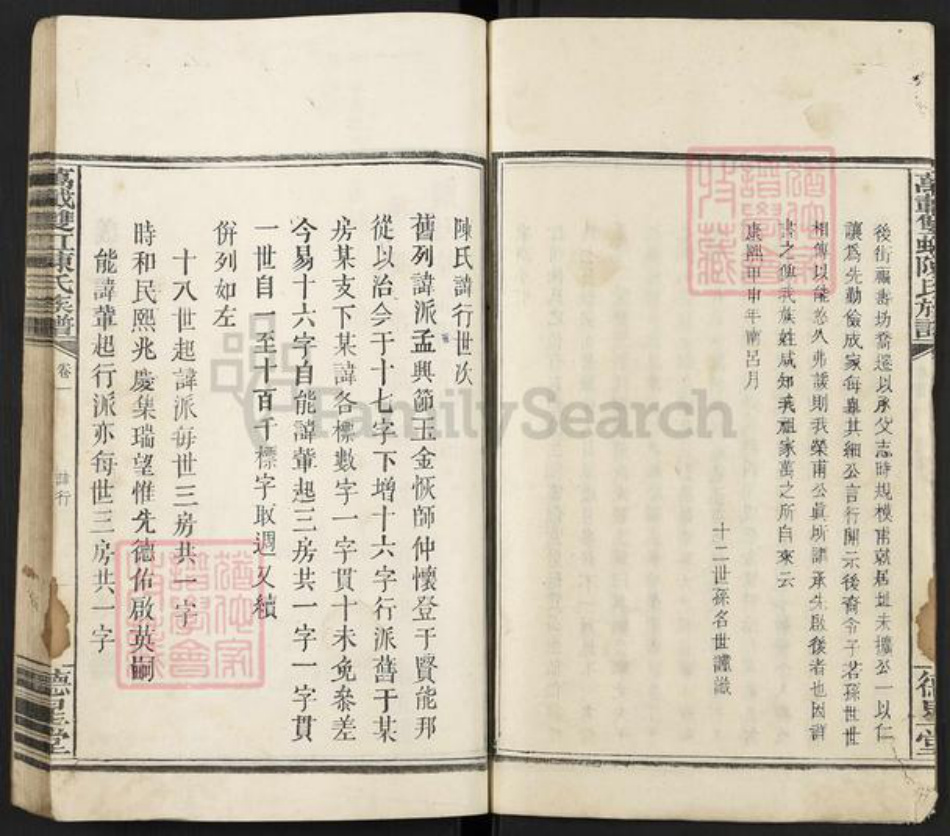 萬載雙虹陳氏族譜
德星堂
後街廟書坊喬遷以承父志時規模甫就居址未擴公一以仁
讓爲先勤儉成家每與其細公言行開示後裔令子若孫世世
相傳以能悠久弗諼則我榮甫公眞所謂承先啟後者也因謂
之傳我族姓咸知我祖家萬之所自來云
十二世孫名世謹識
康熙甲申年南呂月
陳氏諱行世次
舊列諱派孟興節玉金恢師仲懷登于賢能邦
從以治今于十七字下增十六字行派舊于某
房某支下某諱各標數字一字貫十未免參差
今易十六字自能諱輩起三房共一字一字貫
一世自一至十百千標字取週又續
併列如左
十八世起諱派每世三房共一字
時和民熙兆慶集瑞望惟先德佑啟英嗣
能諱輩起行派亦每世三房共一字
萬載雙虹陳氏族譜
卷一
諱行
德星堂
FamilySearch